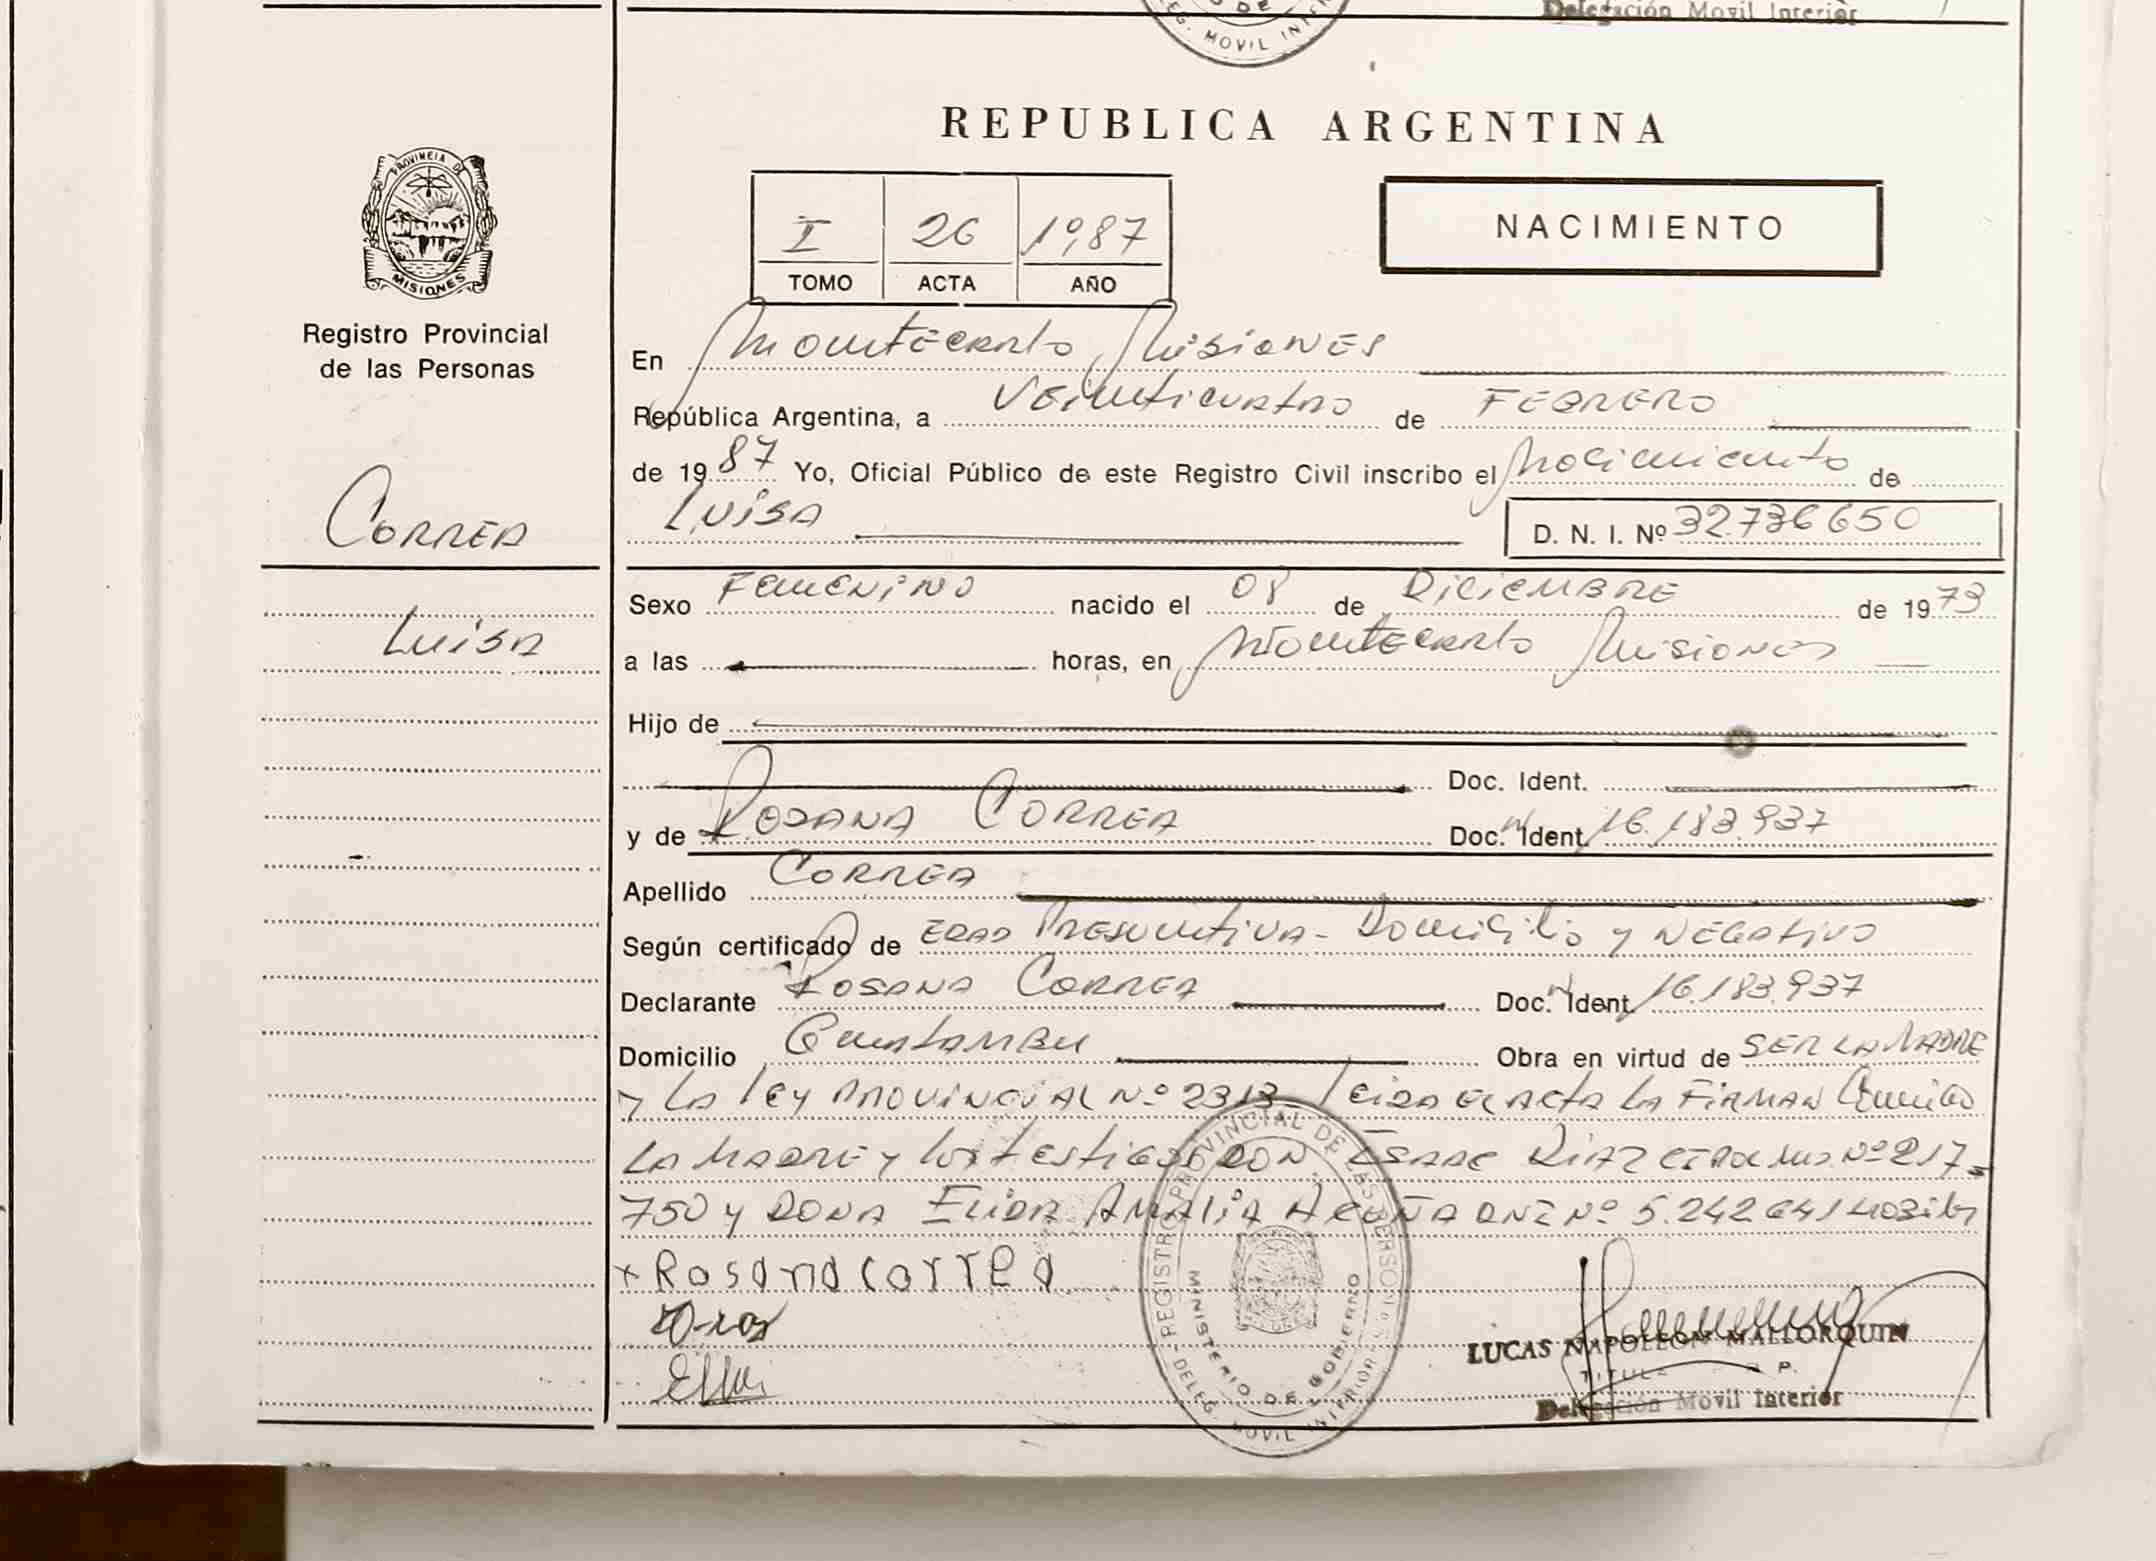 DE
DELEG. MOVIL INTERIOR
Delegación Movil Interior
REPUBLICA ARGENTINA
PROVINCIA DE MISIONES
Registro Provincial
de las Personas
I 26 1987
TOMO ACTA AÑO
NACIMIENTO
En Montecarlo, Misiones
República Argentina, a Veinticuatro de FEBRERO
de 1987 Yo, Oficial Público de este Registro Civil inscribo el Nacimiento de
CORREA
LUISA D. N. I. Nº 32.736650
Sexo Femenino nacido el 08 de DiciEMBRE de 1973
Luisa
a las horas, en Montecarlo Misiones
Hijo de
Doc. Ident.
y de ROSANA CORREA Doc. Ident. 16.183.937
Apellido CORREA
Según certificado de EDAD PRESUNTIVA - Domicilio y NEGATIVO
Declarante ROSANA CORREA Doc. Ident. 16.183.937
Domicilio Guatambu Obra en virtud de SER LA MADRE
y LA LEY PROVINCIAL Nº 2313 Leida el ACTA LA FIRMAN Conmigo
LA MADRE y los testigos DON ISAAC DIAZ Nº 217-
750 y DOÑA ELIDA AMALIA ACUÑA DNI Nº 5.242641
x Rosana correa
REGISTRO PROVINCIAL DE LAS PERSONAS
MINISTERIO DE GOBIERNO
DELEG. MOVIL INTERIOR
LUCAS NAPOLEON MALLORQUIN
Delegación Movil Interior